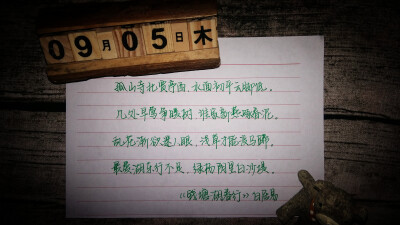 09月05日木
孤山寺北贾亭西，水面初平云脚低。
几处早莺争暖树，谁家新燕啄春泥。
乱花渐欲迷人眼，浅草才能没马蹄。
最爱湖东行不足，绿杨阴里白沙堤。
《钱塘湖春行》白居易